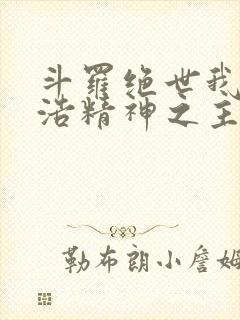 斗罗绝世我
浩精神之主
勒布朗小詹姆